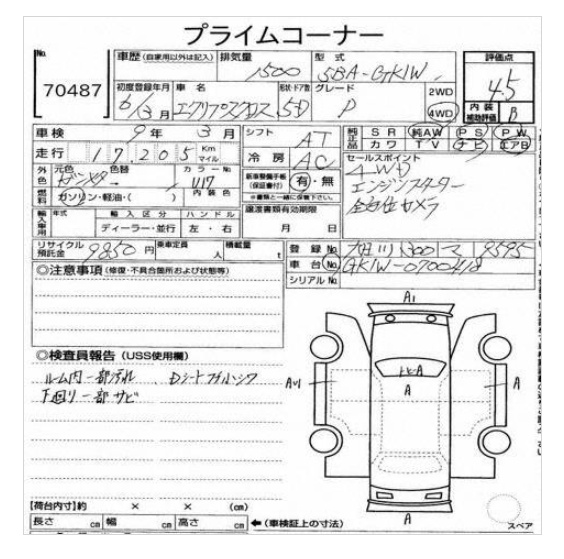 プライムコーナー
No.
70487
車歴 (自家用以外は記入)
排気量
1500
型式
5BA-GK1W
評価点
4.5
内装
補助評価
B
初度登録年月
車名
形状・ドア数
グレード
2WD
4WD
月 エクリプスクロス 5D P
車検 年 3月
シフト AT
純正品
SR 純AW PS PW
カワ TV ナビ エアB
走行 17,205 Km マイル
冷房 AC
セールスポイント
4WD
エンジンスターター
全方位カメラ
外色 元色 色替 カラーNo.
U17
内装色
新車整備手帳
(保証書付)
有・無
燃料 ガソリン・軽油・( )
譲渡書類有効期限
月 日
輸入車用 年式 輸入区分 ハンドル
ディーラー・並行 左・右
リサイクル預託金 9850円 乗車定員 人 積載量 t
登録No. 旭川 300 9595
車台No. GK1W-0700418
シリアルNo.
◎注意事項 (修復・不具合箇所および状態等)
◎検査員報告 (USS使用欄)
ルーム内一部汚れ、Dシート
下回り一部サビ
A1
A
A
A
A
【荷台内寸】約 × × (cm)
長さ cm 幅 cm 高さ cm
←(車検証上の寸法)
スペア